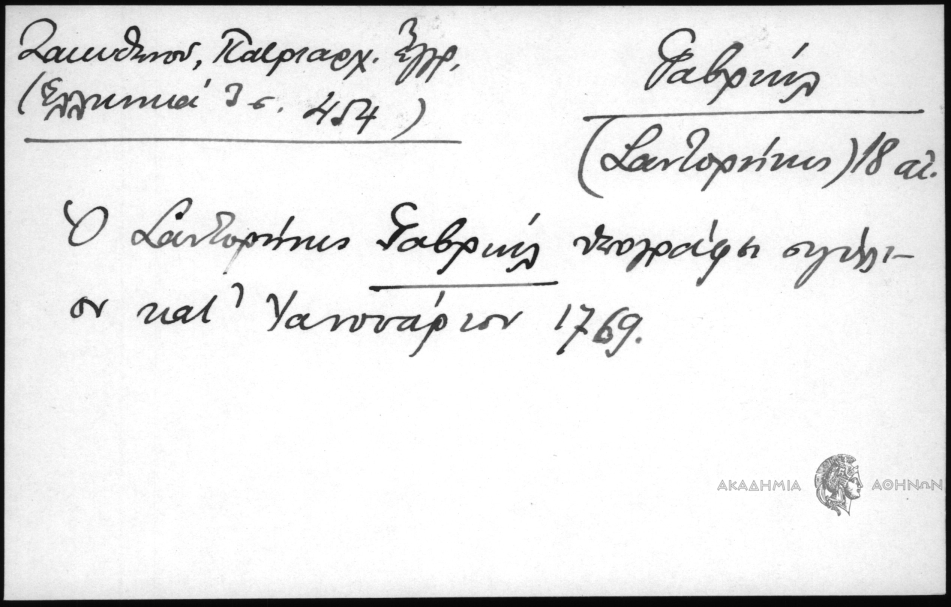 Ζακυθηνού, Πατριαρχ. Ἔγγρ.
(Ἑλληνικά 3 σ. 454)
Γαβριήλ
(Σαντορίνης) 18 αἰ.
Ὁ Σαντορίνης Γαβριήλ ὑπογράφει σιγίλλι-
ον κατ' Ἰανουάριον 1769.
ΑΚΑΔΗΜΙΑ ΑΘΗΝΩΝ